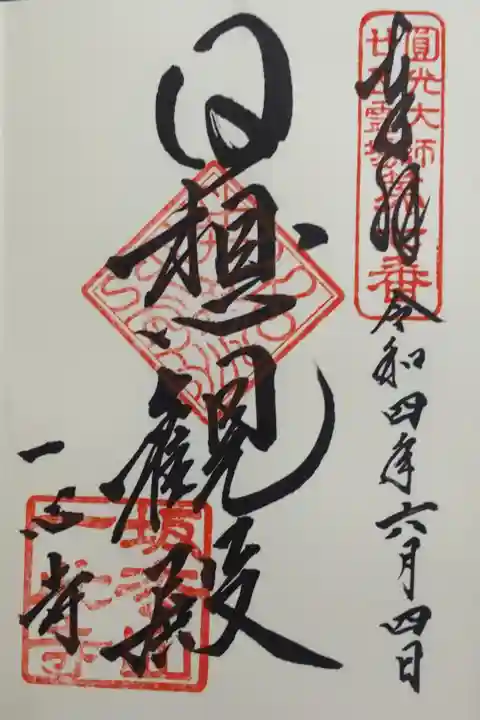 圓光大師
廿五霊場第七番
奉拝 令和四年六月四日
日想観殿
一心寺